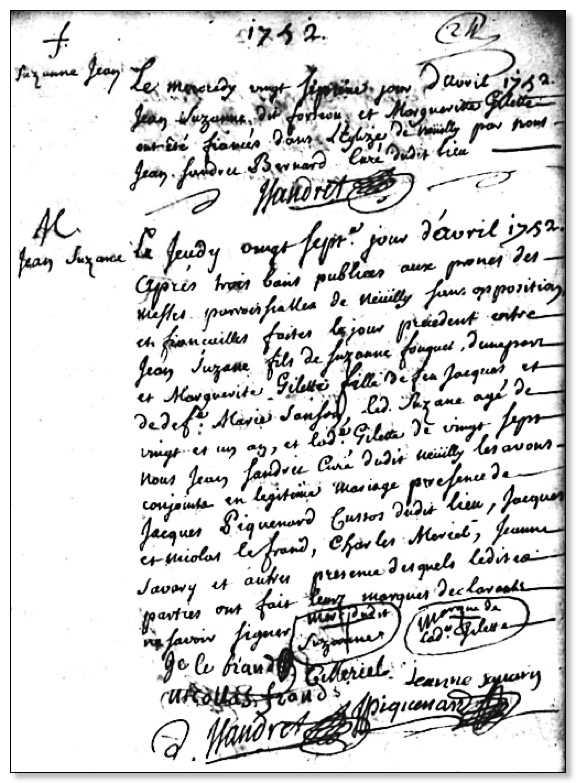 1752.
f.
Suzanne Jean
Le mercredy vingt sixieme jour d'avril 1752.
Jean Suzanne dit et Marguerite Gilette
ont été fiancés dans l'Eglize de neüilly par nous
Jean handret Bernard Curé dudit lieu
JHandret
M.
Jean Suzanne
Le Jeudy vingt sept.e jour d'avril 1752.
après trois bans publiees aux prones des
messes parroissialles de neüilly sans opposition
et fiancailles faites le jour precedent entre
Jean Suzane fils de Suzanne fouquet, d'une part
et Marguerite Gilette fille de feu Jacques et
de def.te Marie Sanson, led. Suzane agé de
vingt et un an, et lad.e Gilette de vingt sept
nous Jean handret Curé dudit neüilly les avons
conjoints en legitime mariage presence de
Jacques Piquenard Custos dudit lieu, Jacques
et nicolas le frand, Charles Meriel, Jeanne
Savary et autres presence desquels lesdites
parties ont fait leurs marques declarants
ne savoir signer
marc dudit
Suzanne
Marque de
lad.e Gilette
C Meriel
Jeanne savary
nicollas frand
JPiquenard
JHandret